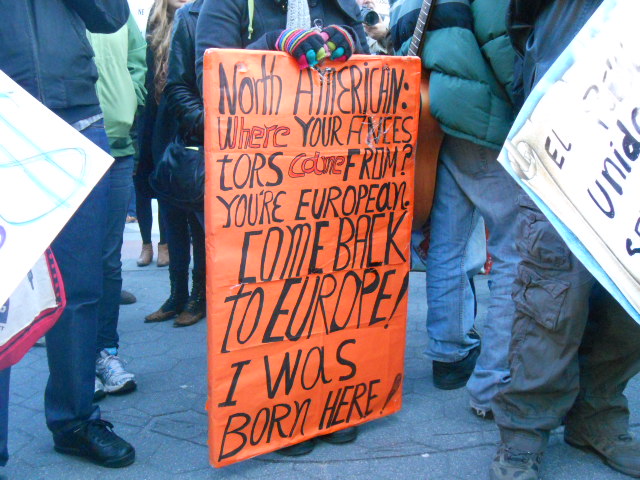 North American:
Where your Ances
tors come from?
You're European.
Come back
to Europe!
I was
born here!
El
unido